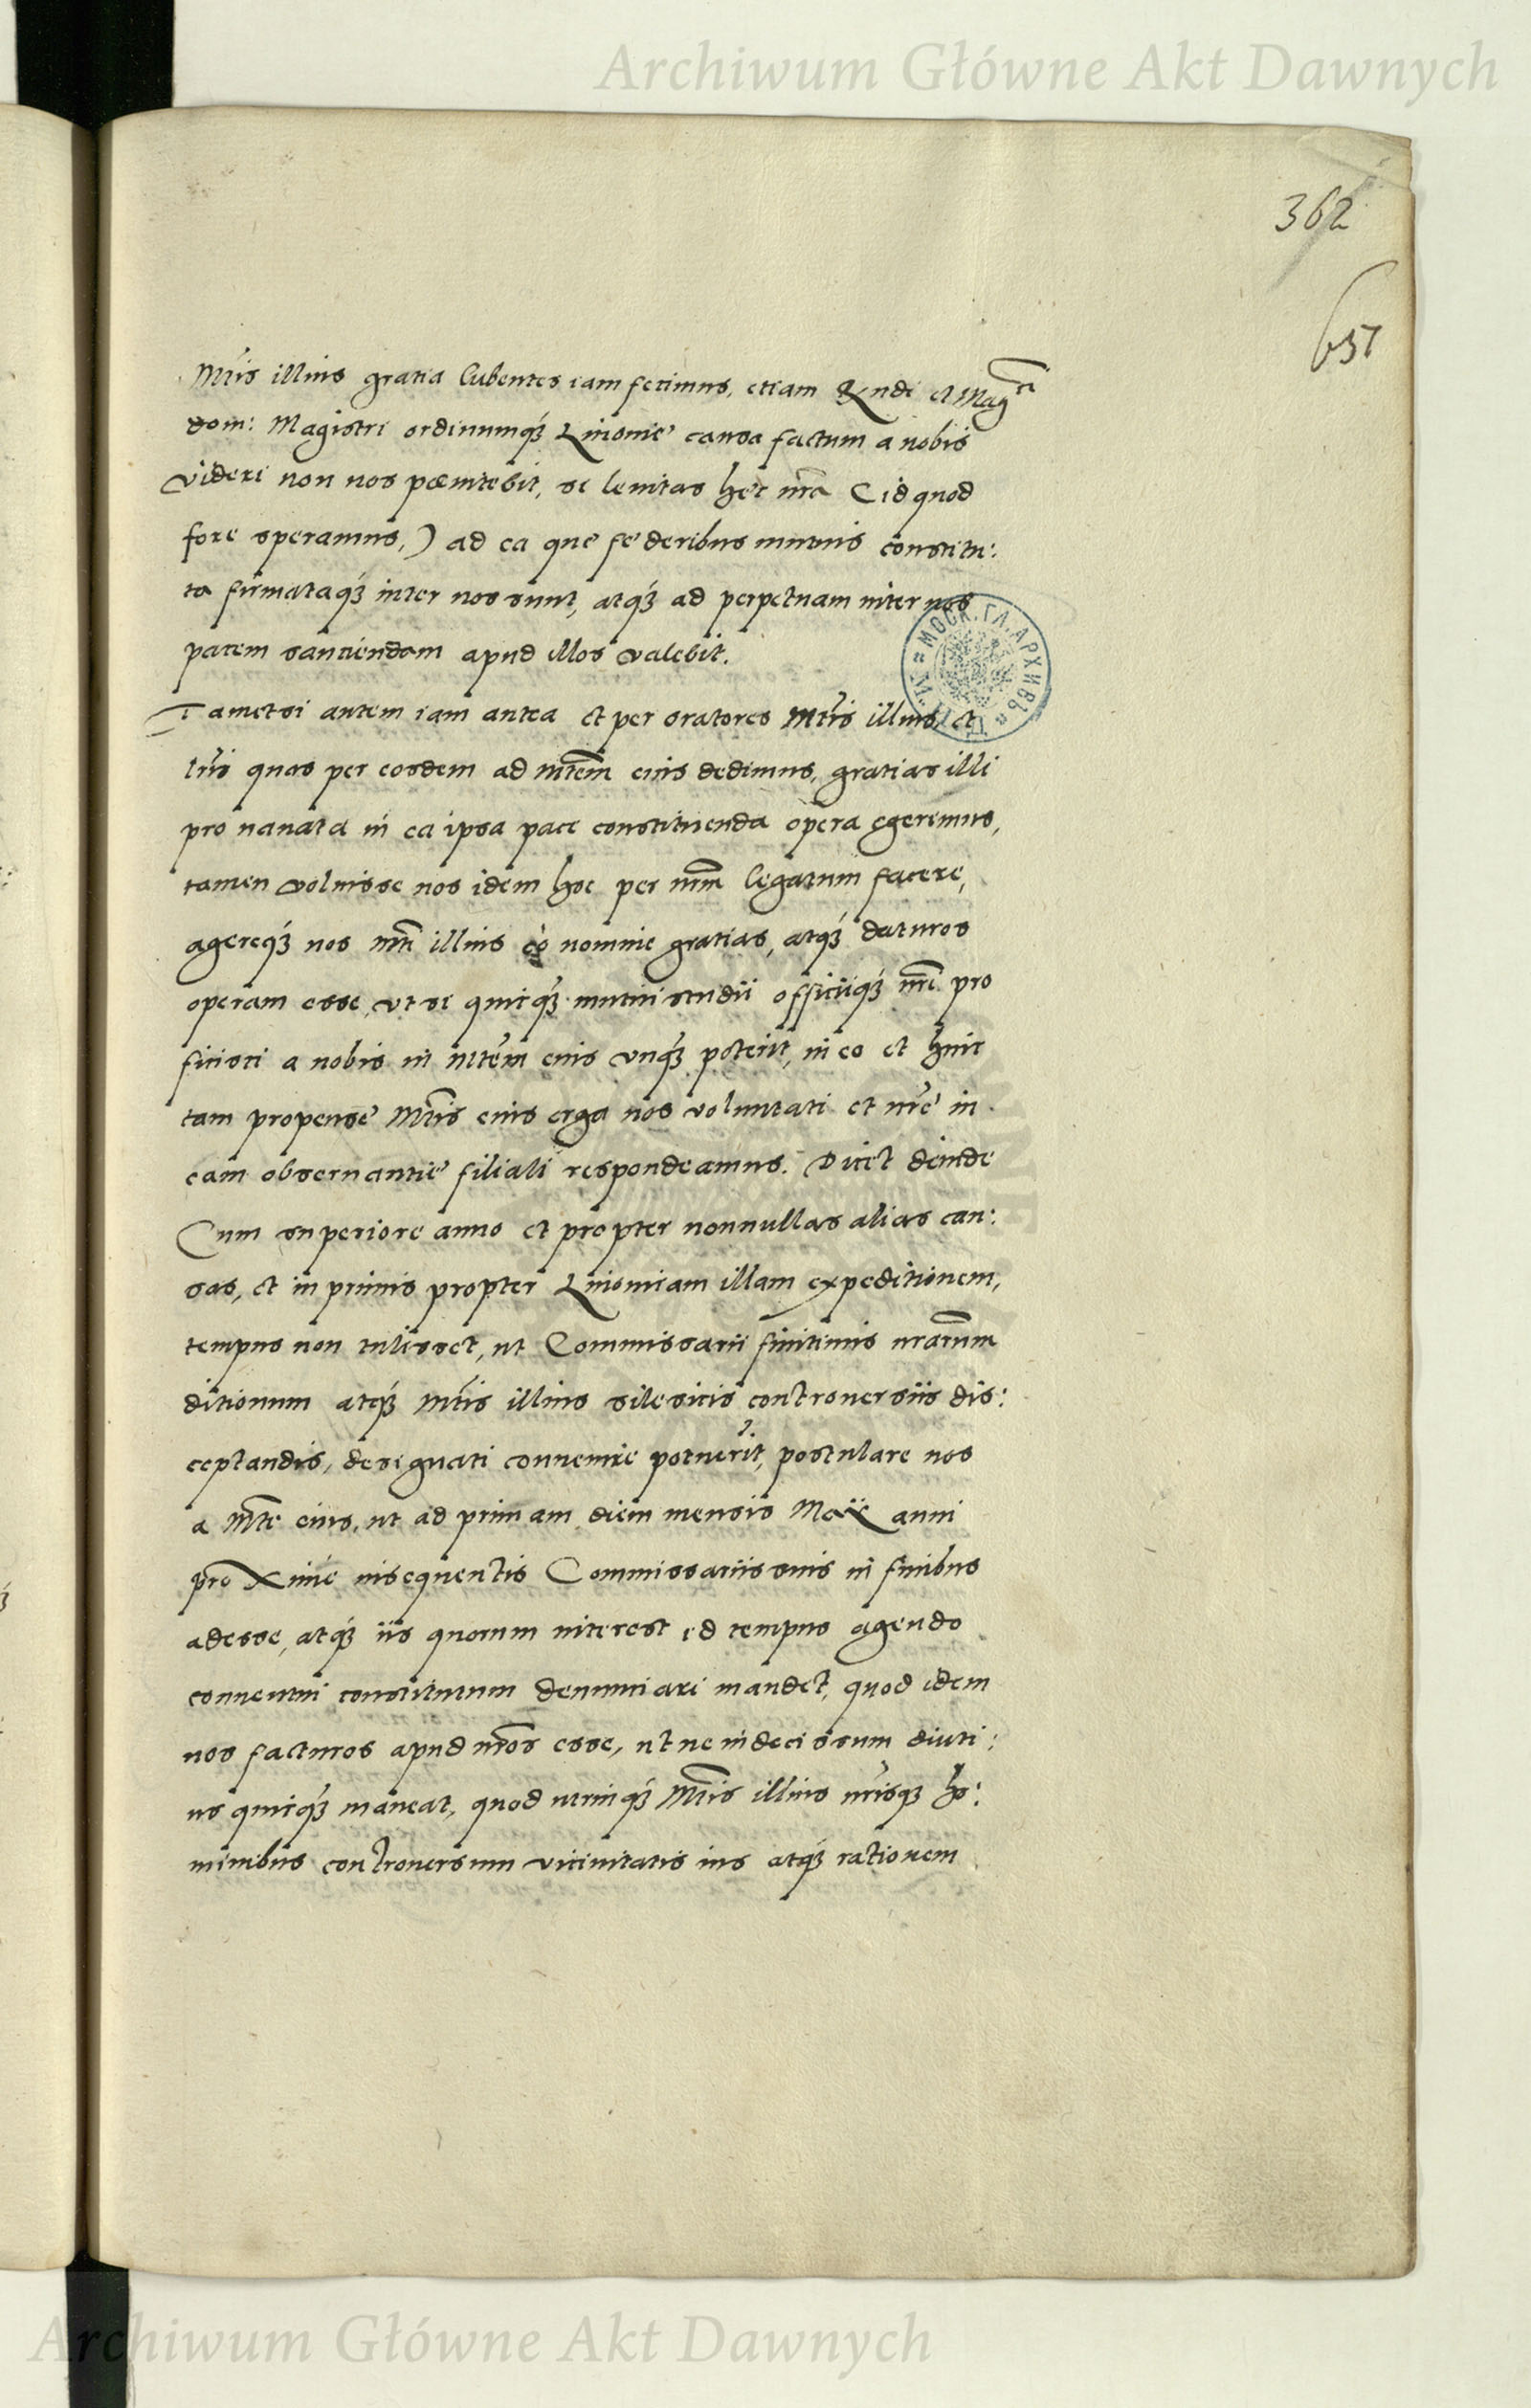 Archiwum Główne Akt Dawnych
362
657
Mtis illius gratia lubentes iam fecimus, etiam Rndi et Magci
dom: Magistri ordinumq́ȝ Liuonię causa factum a nobis
videri non nos pœnitebit, si lenitas hęc nrā (id quod
fore speramus,) ad ea quę fęderibus mutuis constitu:
ta firmataq́ȝ inter nos sunt, atq́ȝ ad perpetuam inter nos
pacem sanciendam apud illos valebit.
МОСК. ГЛ. АРХИВЪ
Tametsi autem iam antea et per oratores Mtis illius, et
lrīs quas per eosdem ad Mtem eius dedimus, gratias illi
pro nauata in ea ipsa pace constituenda opera egerimus,
tamen voluisse nos idem hoc per nrm̄ legatum facere,
agereq́ȝ nos Mti illius eo nomine gratias, atq́ȝ daturos
operam esse, vt si quicq́ȝ mutui studii officiiq́ȝ nrī pro
ficisci a nobis in Mtem eius vnq́ȝ poterit, in eo et huic
tam propensę Mtis eius erga nos voluntati et nrę̄ in
eam obseruantię filiali respondeamus. Dicet deinde
Cum superiore anno et propter nonnullas alias cau:
sas, et in primis propter Liuoniam illam expeditionem,
tempus non tulisset, ut Commissarii finitimis nrārum
ditionum atq́ȝ Mtis illius silesicis controuersiis dis:
ceptandis, designati conuenire potuerīt, postulare nos
a Mte eius, ut ad primam diem mensis Maii anni
proximę insequentis Commissariis suis in finibus
adesse, atq́ȝ iis quorum interest id tempus agendo
conuentui constitutum denunciari mandet, quod idem
nos facturos apud nrōs esse, ut ne indecissum diuti:
us quicq́ȝ maneat, quod utrinq́ȝ Mtis illius nrīsqȝ ho:
minibus controuersum vicinitatis ius atq́ȝ rationem
Archiwum Główne Akt Dawnych